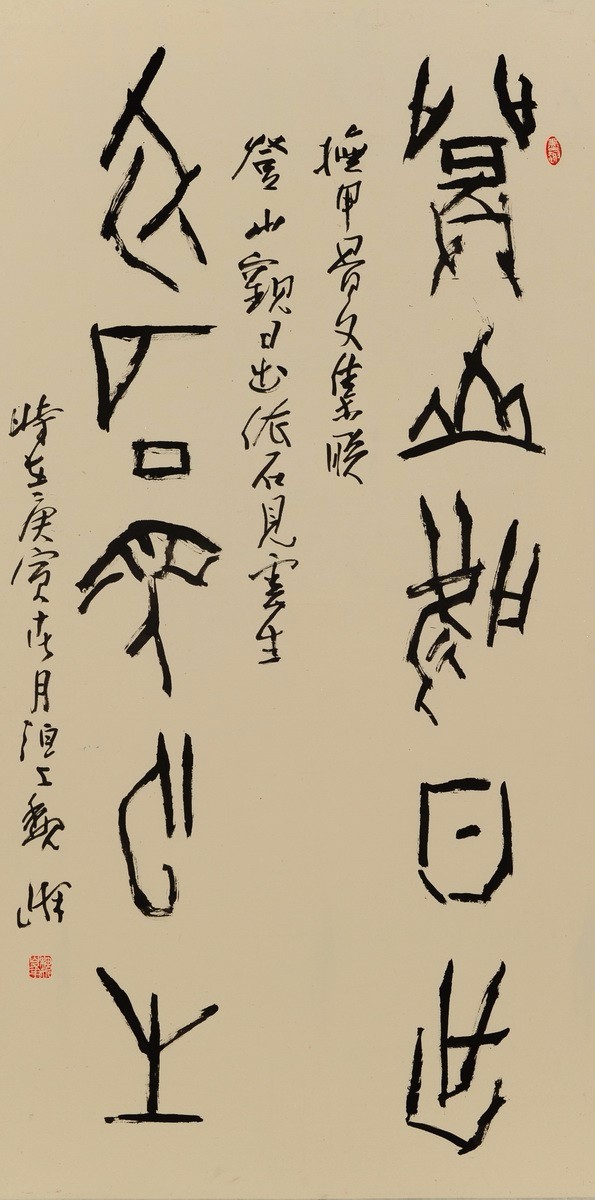 登山觀日出
撫甲骨文集聯
登山觀日出依石見雲生
依石見雲生
時在庚寅月洹上魏